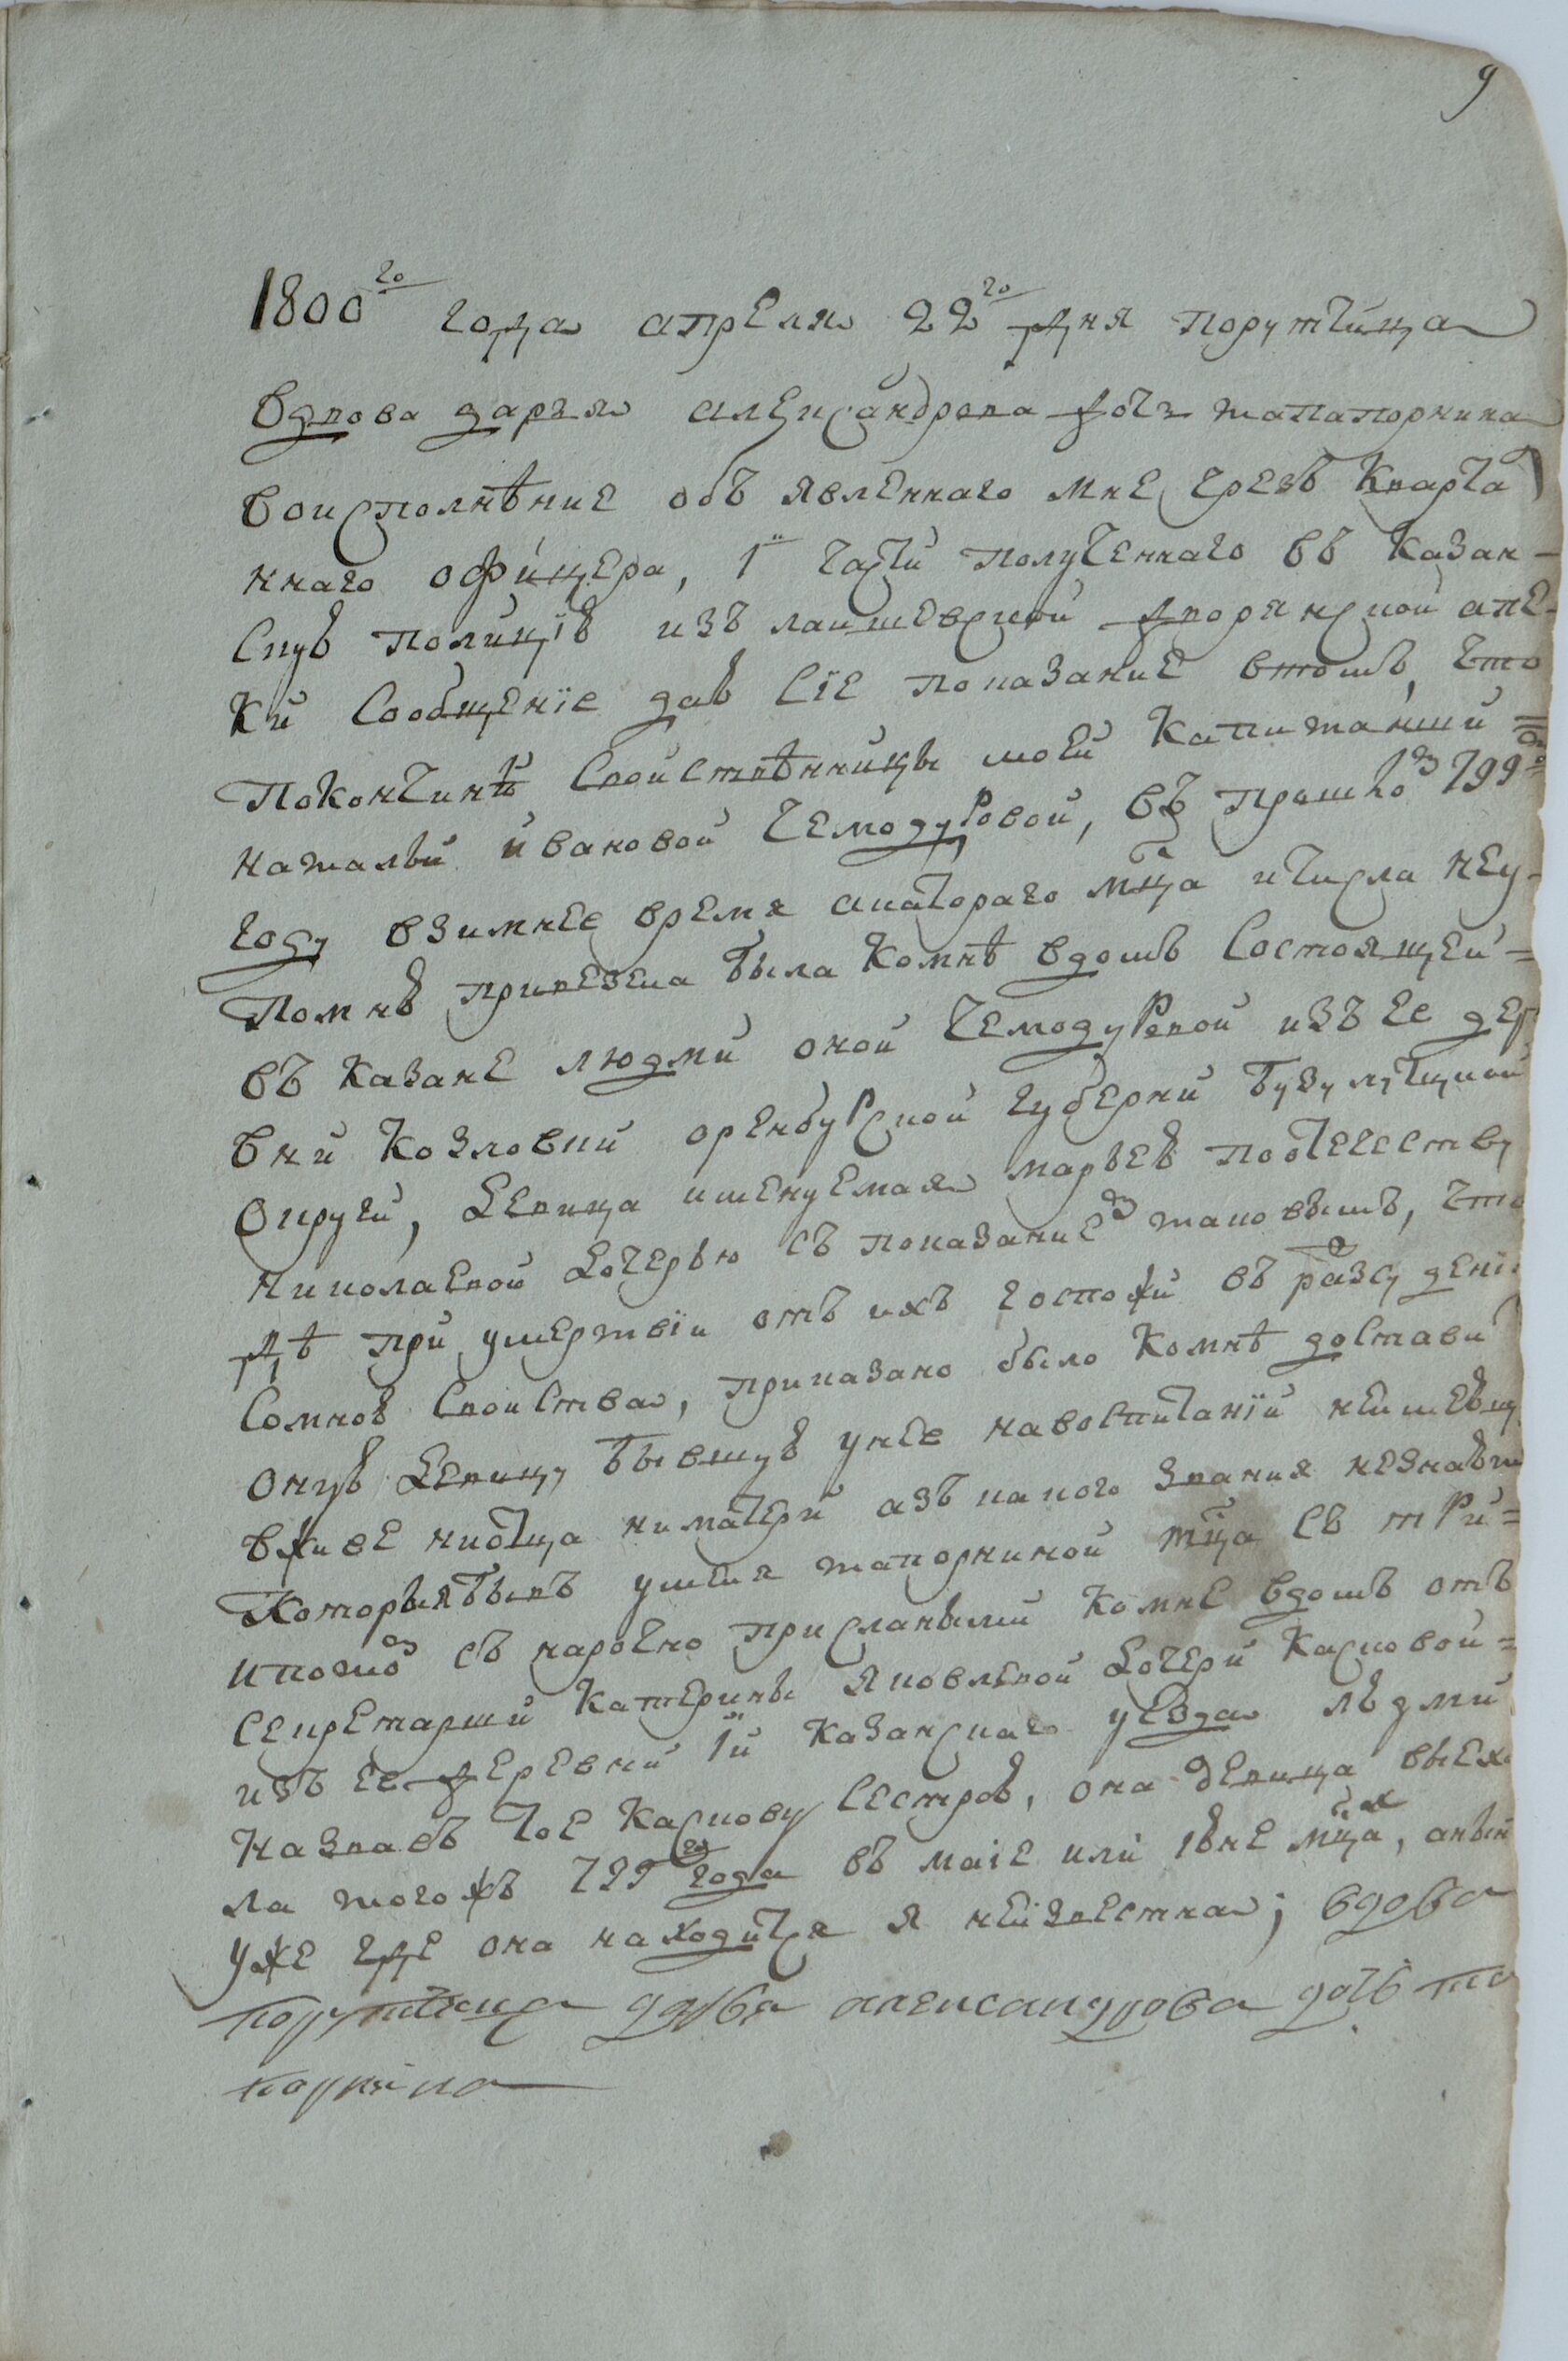 9
1800го года апреля 22го дня порутчица
вдова дарья александрова дочь тапапорнина
воисполнѣние объ явленнаго мне чрезъ Кварта
ннаго офицера, 1й части полученнаго въ казан-
скую полицїю изъ лаишевской дворянской апе-
ки Сообщенїе даю сїе показание втомъ, что
покончинѣ свойственницы моей Капитанши =
натальи ивановой Чемодуровой, въ прошломъ 799м
году взимнее время а котораго мца и числа неу-
помню привезена была Комнѣ вдомъ состоящей =
въ казане людми оной Чемодуровой изъ ее дер
вни козловки оренбурской губерни бузулуцкой
округи, девица имянуемая марьею поотечеству
николаевой дочерью съ показаниемъ таковымъ, что
дѣ при умертвїи отъ ихъ госпожи въ разсуденїи
сомною свойства, приказано было комнѣ достави
оную девицу бывшую унее навоспитанїи неимевшу
вживе ниотца ниматери азъ какого звания незнаю
Которыя бывъ уменя тапорниной мца съ три =
и потомъ съ нарочно присланными комне вдомъ отъ
секретарши катерины яковлевой дочери Касловой =
изъ ее деревни 1й казанскаго уезда людми
назвавъ тое Каслову сестрою, она девица выеха
ла тогожъ 799го года въ маїе или июне мцах, аныне
уже где она находится я неизвестна; вдова
порутчица дарья александрова дочь та
порнина